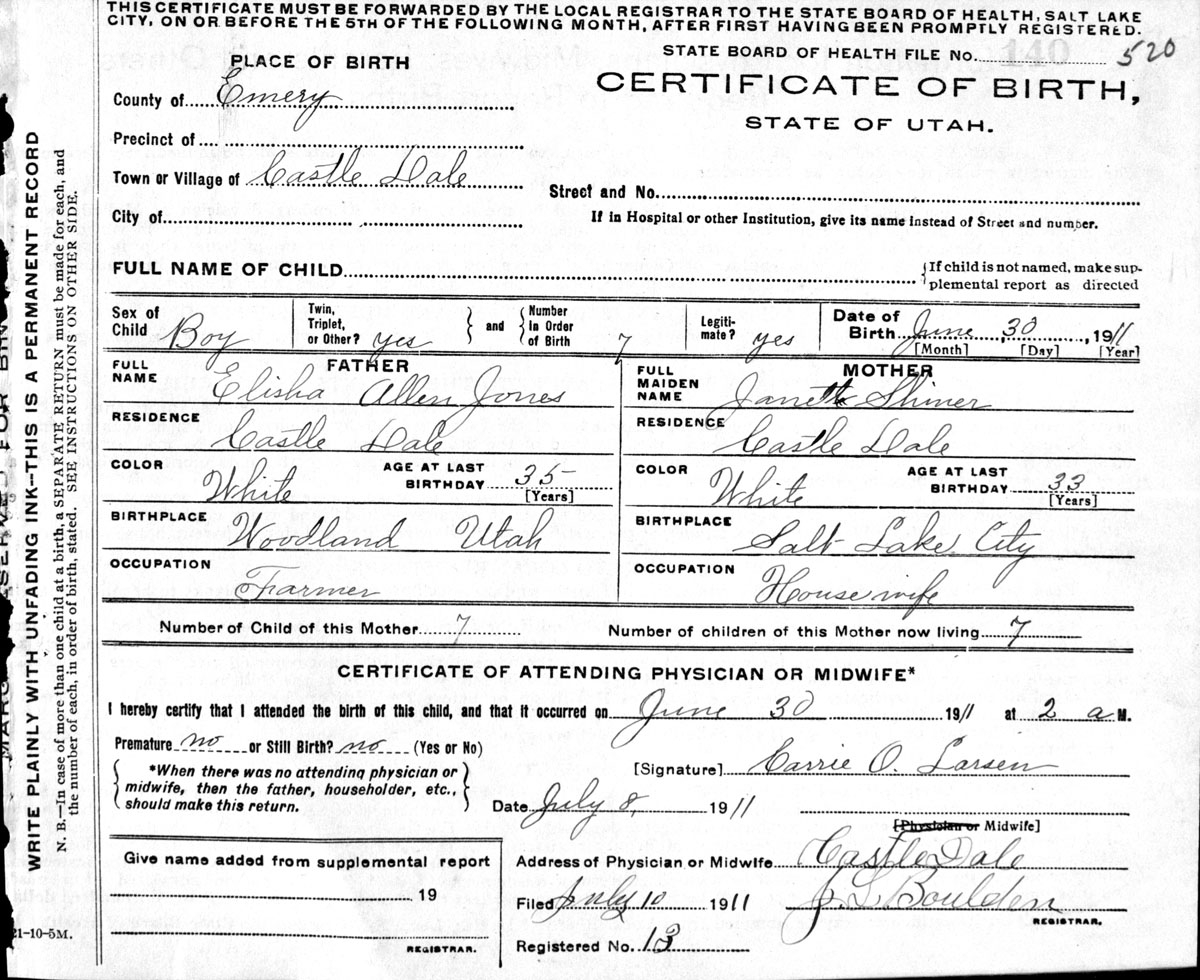 THIS CERTIFICATE MUST BE FORWARDED BY THE LOCAL REGISTRAR TO THE STATE BOARD OF HEALTH, SALT LAKE
CITY, ON OR BEFORE THE 5TH OF THE FOLLOWING MONTH, AFTER FIRST HAVING BEEN PROMPTLY REGISTERED.
STATE BOARD OF HEALTH FILE No. 140 520
PLACE OF BIRTH
CERTIFICATE OF BIRTH,
STATE OF UTAH.
County of Emery
Precinct of
Town or Village of Castle Dale
Street and No.
City of
If in Hospital or other Institution, give its name instead of Street and number.
FULL NAME OF CHILD
{If child is not named, make sup-
plemental report as directed
Sex of Child Boy
Twin, Triplet, or Other? yes } and { Number in Order of Birth 7
Legiti-mate? yes
Date of Birth June 30, 1911
[Month] [Day] [Year]
FATHER
FULL NAME Elisha Allen Jones
RESIDENCE Castle Dale
COLOR White AGE AT LAST BIRTHDAY 35
[Years]
BIRTHPLACE Woodland Utah
OCCUPATION Farmer
MOTHER
FULL MAIDEN NAME Janette Shiner
RESIDENCE Castle Dale
COLOR White AGE AT LAST BIRTHDAY 33
[Years]
BIRTHPLACE Salt Lake City
OCCUPATION House wife
Number of Child of this Mother 7 Number of children of this Mother now living 7
CERTIFICATE OF ATTENDING PHYSICIAN OR MIDWIFE*
I hereby certify that I attended the birth of this child, and that it occurred on June 30 1911 at 2 a M.
Premature no or Still Birth? no (Yes or No)
{ *When there was no attending physician or
midwife, then the father, householder, etc.,
should make this return. }
[Signature] Carrie O. Larsen
Date July 8, 1911
[Physician or Midwife]
Give name added from supplemental report
19
REGISTRAR.
Address of Physician or Midwife Castle Dale
Filed July 10 1911 J L Boulden
REGISTRAR.
Registered No. 13
21-10-5M.
WRITE PLAINLY WITH UNFADING INK—THIS IS A PERMANENT RECORD
N. B.—In case of more than one child at a birth, a SEPARATE RETURN must be made for each, and
the number of each, in order of birth, stated. SEE INSTRUCTIONS ON OTHER SIDE.